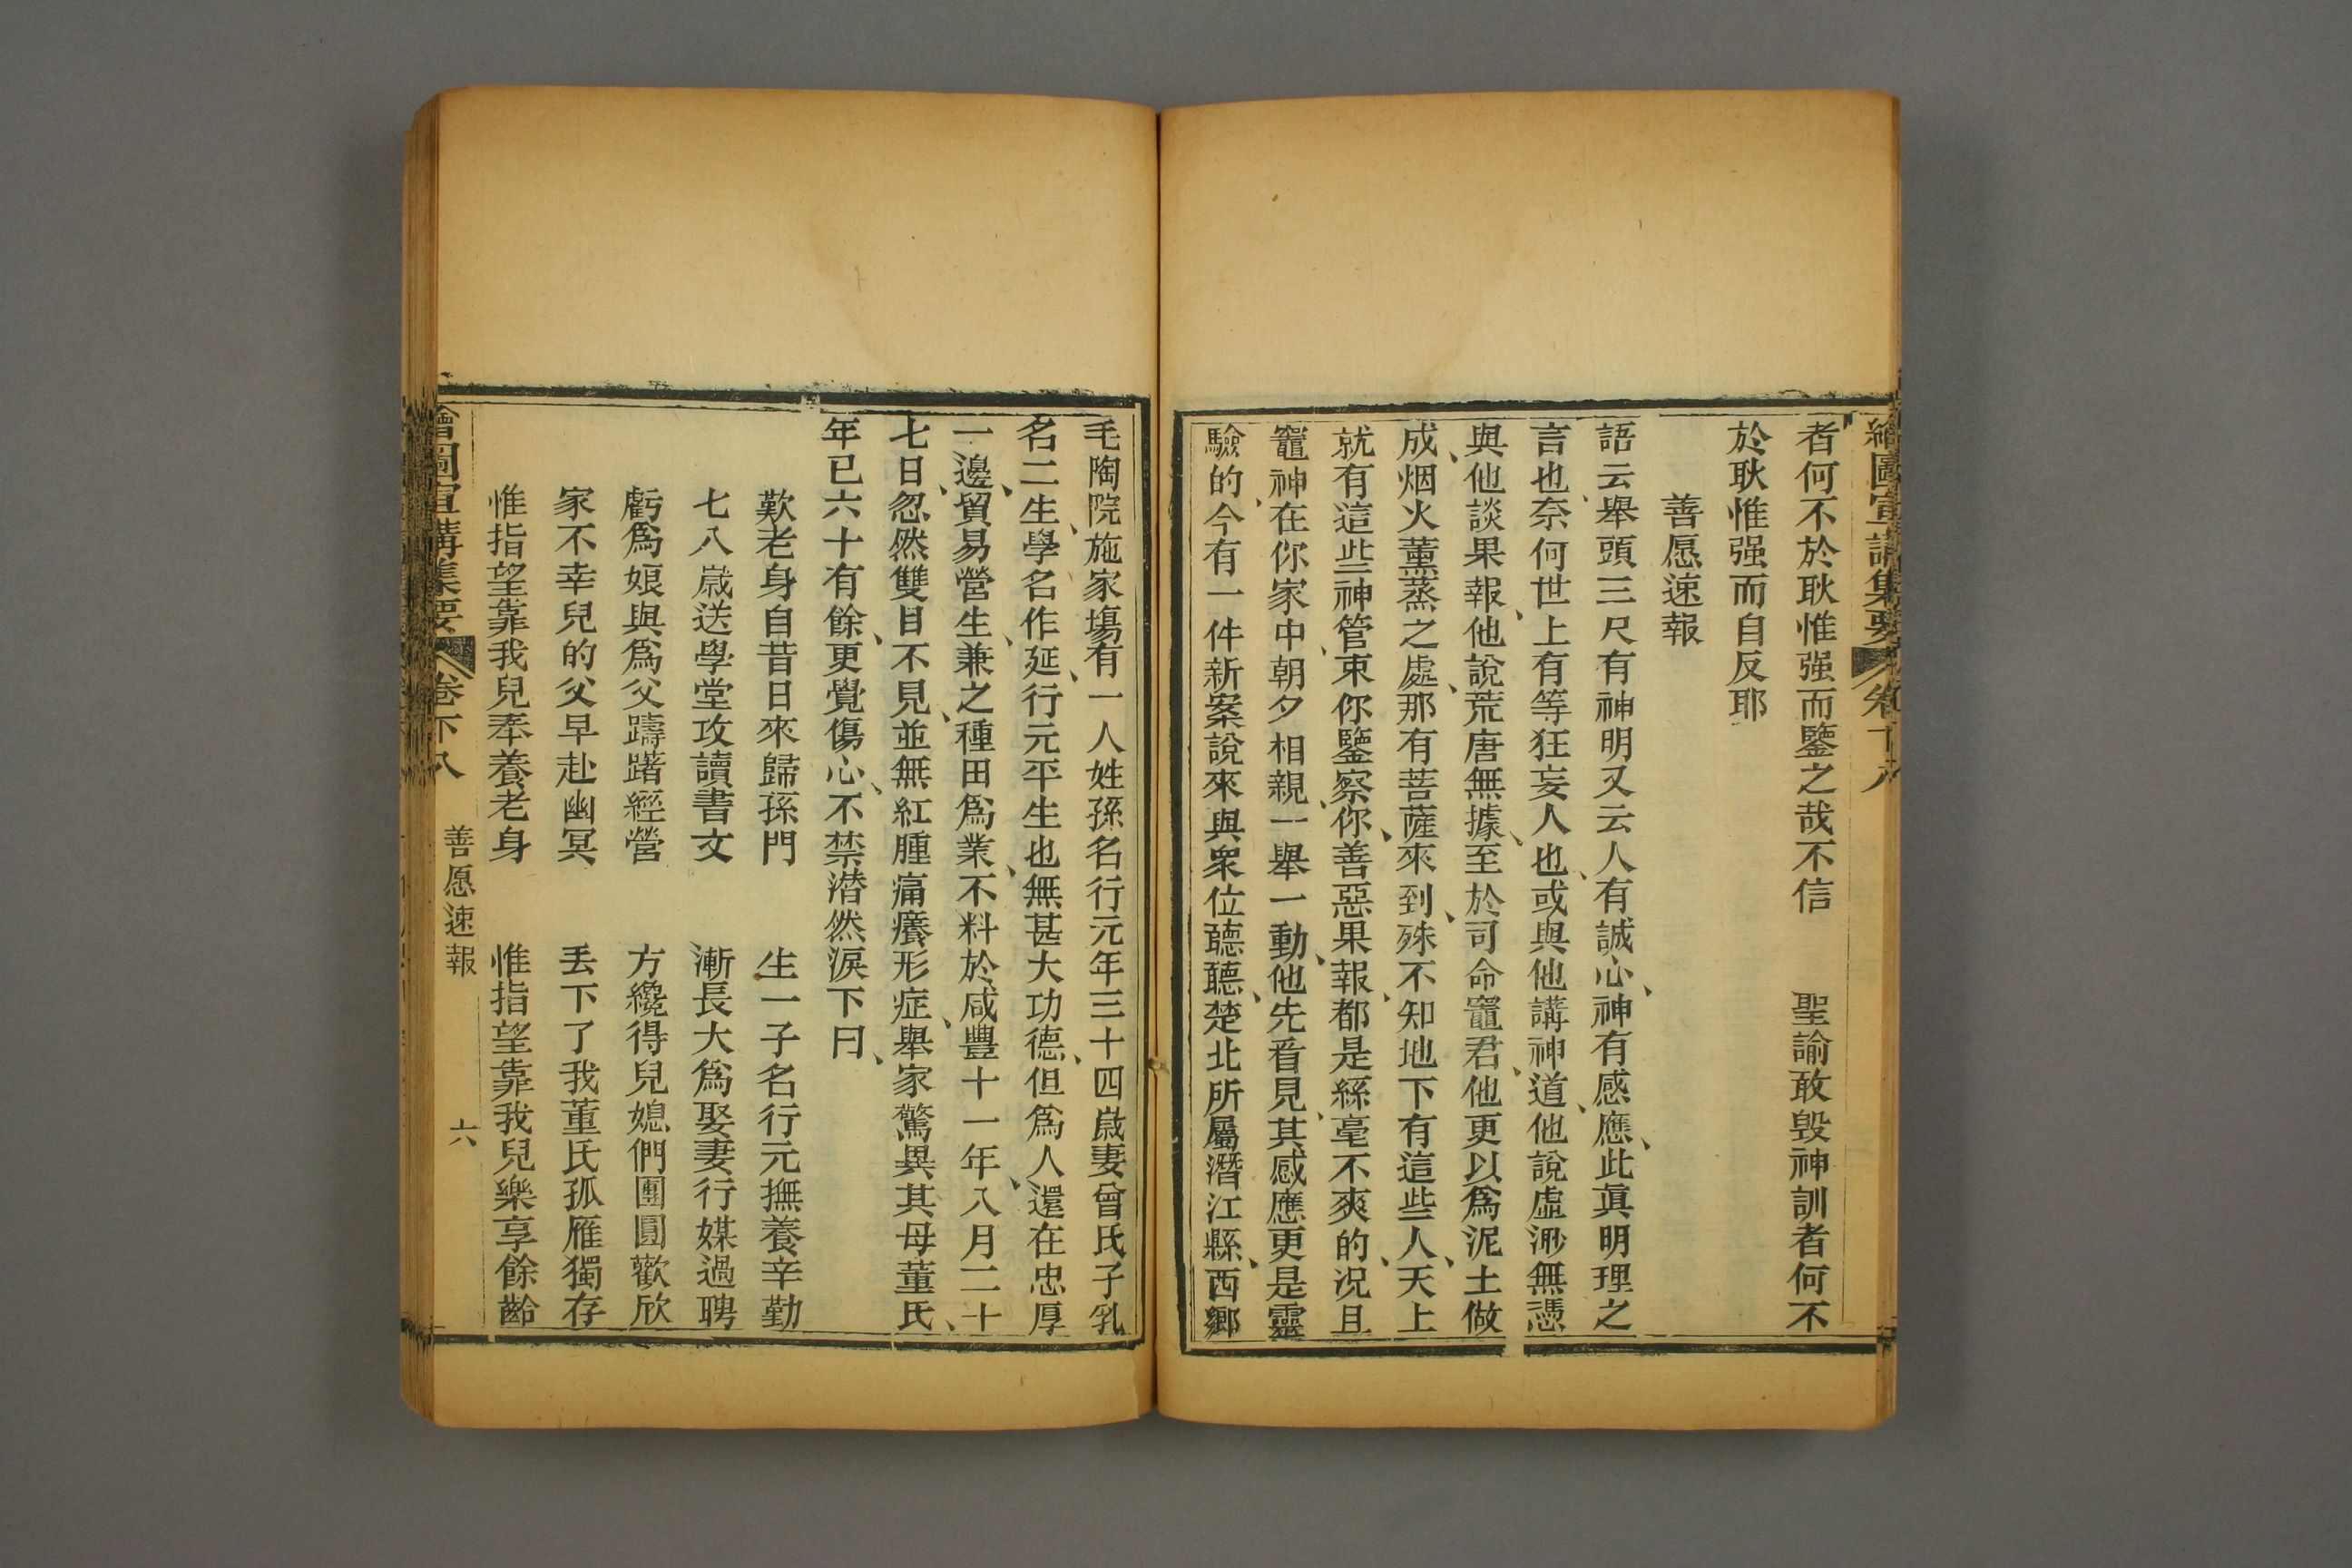 繪圖宣講集要 卷下八
者何不於耿惟强而鑒之哉不信 聖諭敢毀神訓者何不
於耿惟强而自反耶
善愿速報
語云舉頭三尺有神明又云人有誠心、神有感應、此眞明理之
言也、奈何世上有等狂妄人也、或與他講神道、他說虛渺無憑
與他談果報、他說荒唐無據、至於司命竈君、他更以爲泥土做
成、烟火薰蒸之處、那有菩薩來到、殊不知地下有這些人、天上
就有這些神管束你鑒察你、善惡果報、都是絲毫不爽的、况且
竈神在你家中、朝夕相親、一舉一動、他先看見、其感應更是靈
驗的、今有一件新案說來與衆位聽聽、楚北所屬潛江縣、西鄉
毛陶院施家塲有一人姓孫名行元年三十四歲妻曾氏子乳
名二生、學名作延、行元平生也無甚大功德、但爲人還在忠厚
一邊、貿易營生、兼之種田爲業、不料於咸豐十一年、八月二十
七日、忽然雙目不見、並無紅腫痛癢形症、舉家驚異其母董氏、
年已六十有餘、更覺傷心、不禁潸然淚下曰、
歎老身自昔日來歸孫門 生一子名行元撫養辛勤
七八歲送學堂攻讀書文 漸長大爲娶妻行媒過聘
虧爲娘與爲父躊躇經營 方纔得兒媳們團圓歡欣
家不幸兒的父早赴幽冥 丢下了我董氏孤雁獨存
惟指望靠我兒奉養老身 惟指望靠我兒樂享餘齡
繪圖宣講集要 卷下八 善愿速報 六